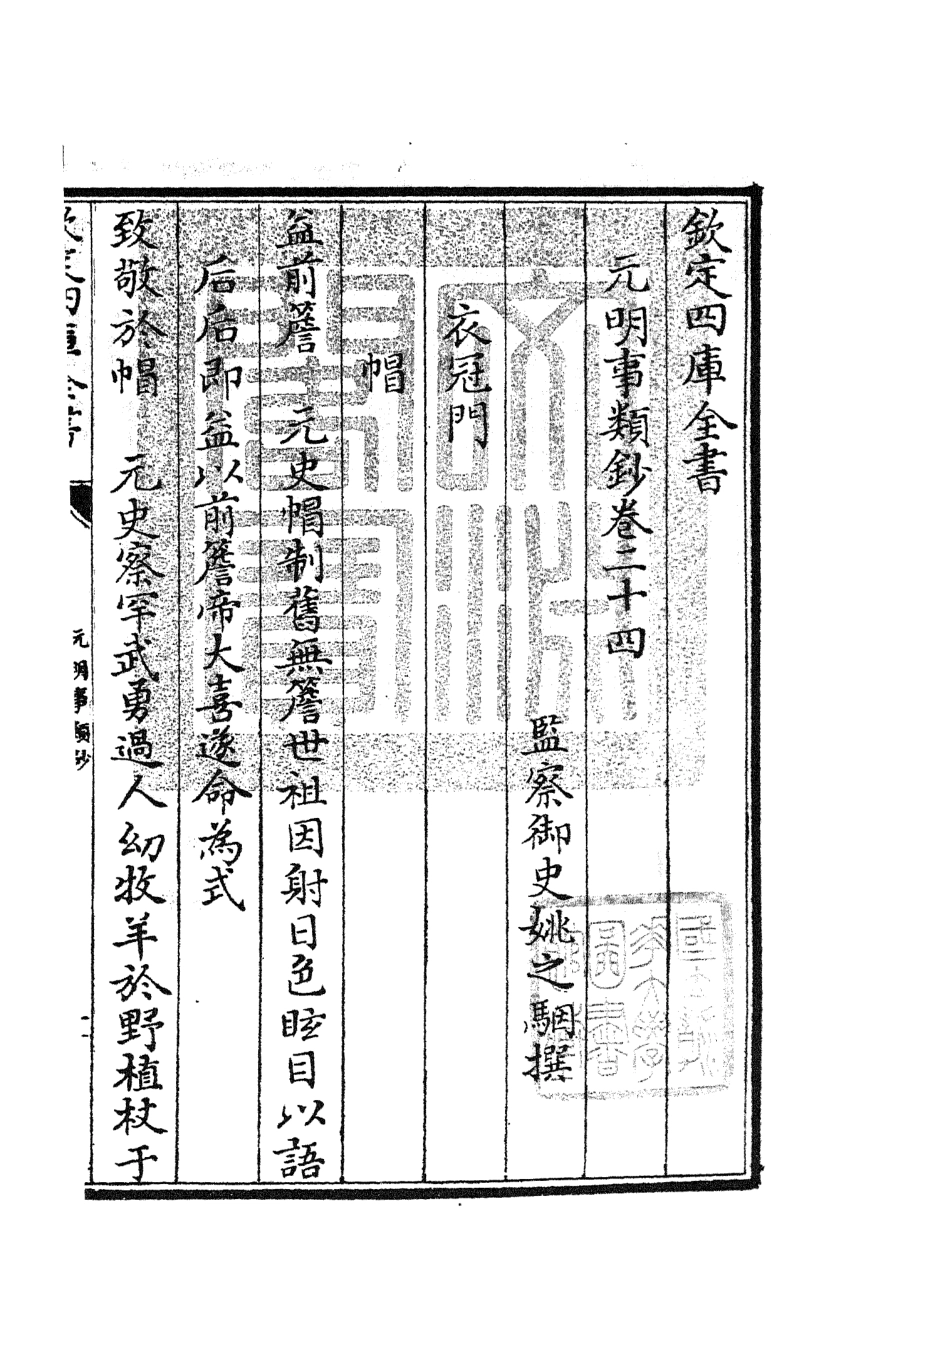 欽定四庫全書
元明事類鈔卷二十四
監察御史姚之駰撰
衣冠門
帽
益前簷　元史帽制舊無簷世祖因射日色眩目以語
后后即益以前簷帝大喜遂命為式
致敬於帽　元史察罕武勇過人幼牧羊於野植杖于
元明事類鈔